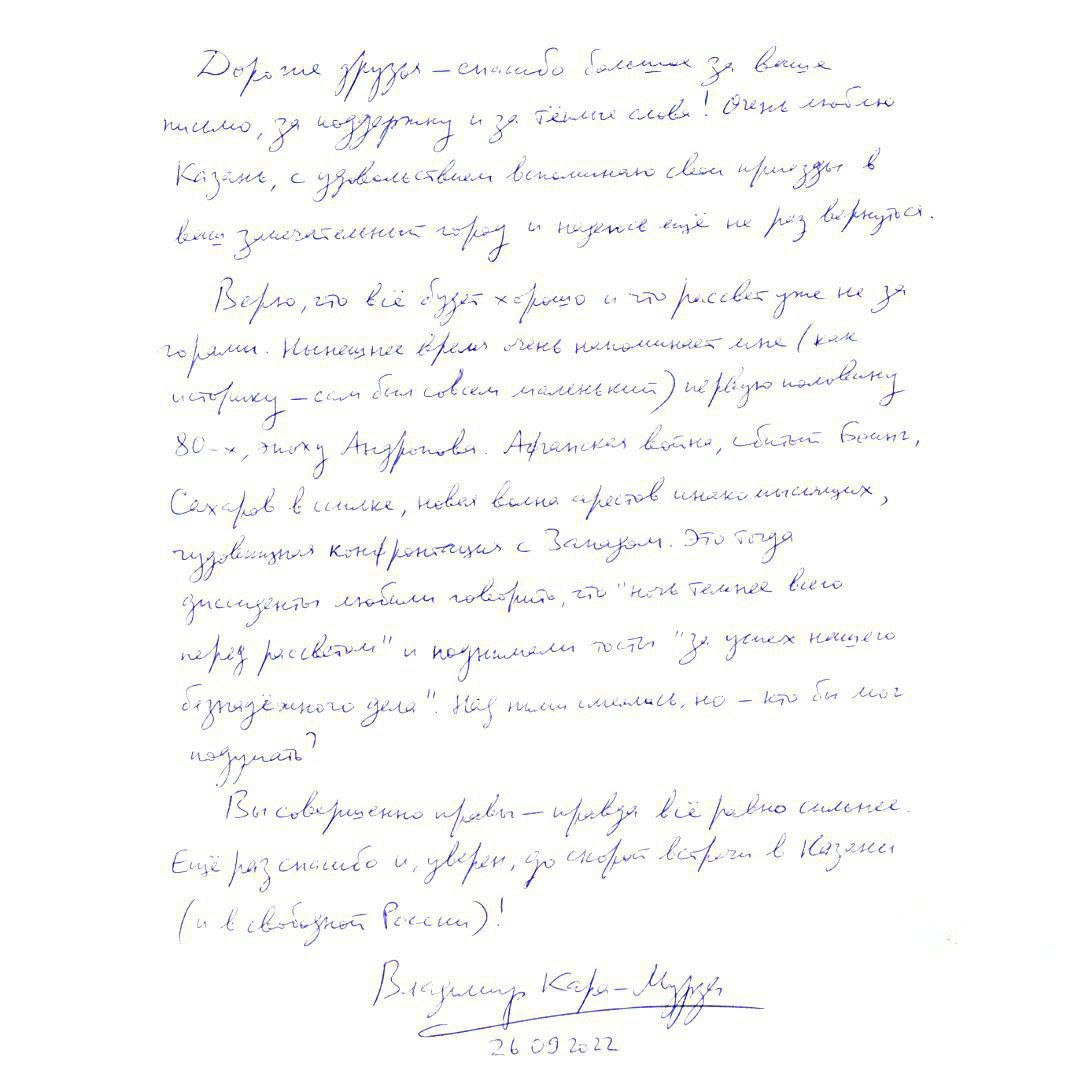 Дорогие друзья – спасибо большое за ваше
письмо, за поддержку и за тёплые слова! Очень люблю
Казань, с удовольствием вспоминаю свои приезды в
ваш замечательный город и надеюсь ещё не раз вернуться.
Верю, что всё будет хорошо и что рассвет уже не за
горами. Нынешнее время очень напоминает мне (как
историку – сам был совсем маленький) первую половину
80-х, эпоху Андропова. Афганская война, сбитый Боинг,
Сахаров в ссылке, новая волна арестов инакомыслящих,
чудовищная конфронтация с Западом. Это тогда
диссиденты любили говорить, что "ночь темнее всего
перед рассветом" и поднимали тосты "за успех нашего
безнадёжного дела". Над ними смеялись, но – кто бы мог
подумать?
Вы совершенно правы – правда всё равно сильнее.
Ещё раз спасибо и, уверен, до скорой встречи в Казани
(и в свободной России)!
Владимир Кара-Мурза
26 09 2022